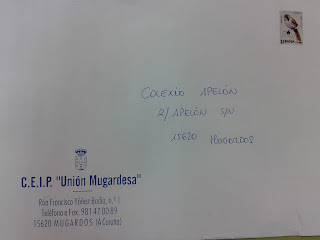 ESPAÑA
COLEXIO APELÓN
R/ APELÓN S/N
15620 MUGARDOS
C.E.I.P. "Unión Mugardesa"
Rúa Francisco Yáñez Badía, n.º 1
Teléfono e Fax: 981 47 00 89
15620 MUGARDOS (A Coruña)